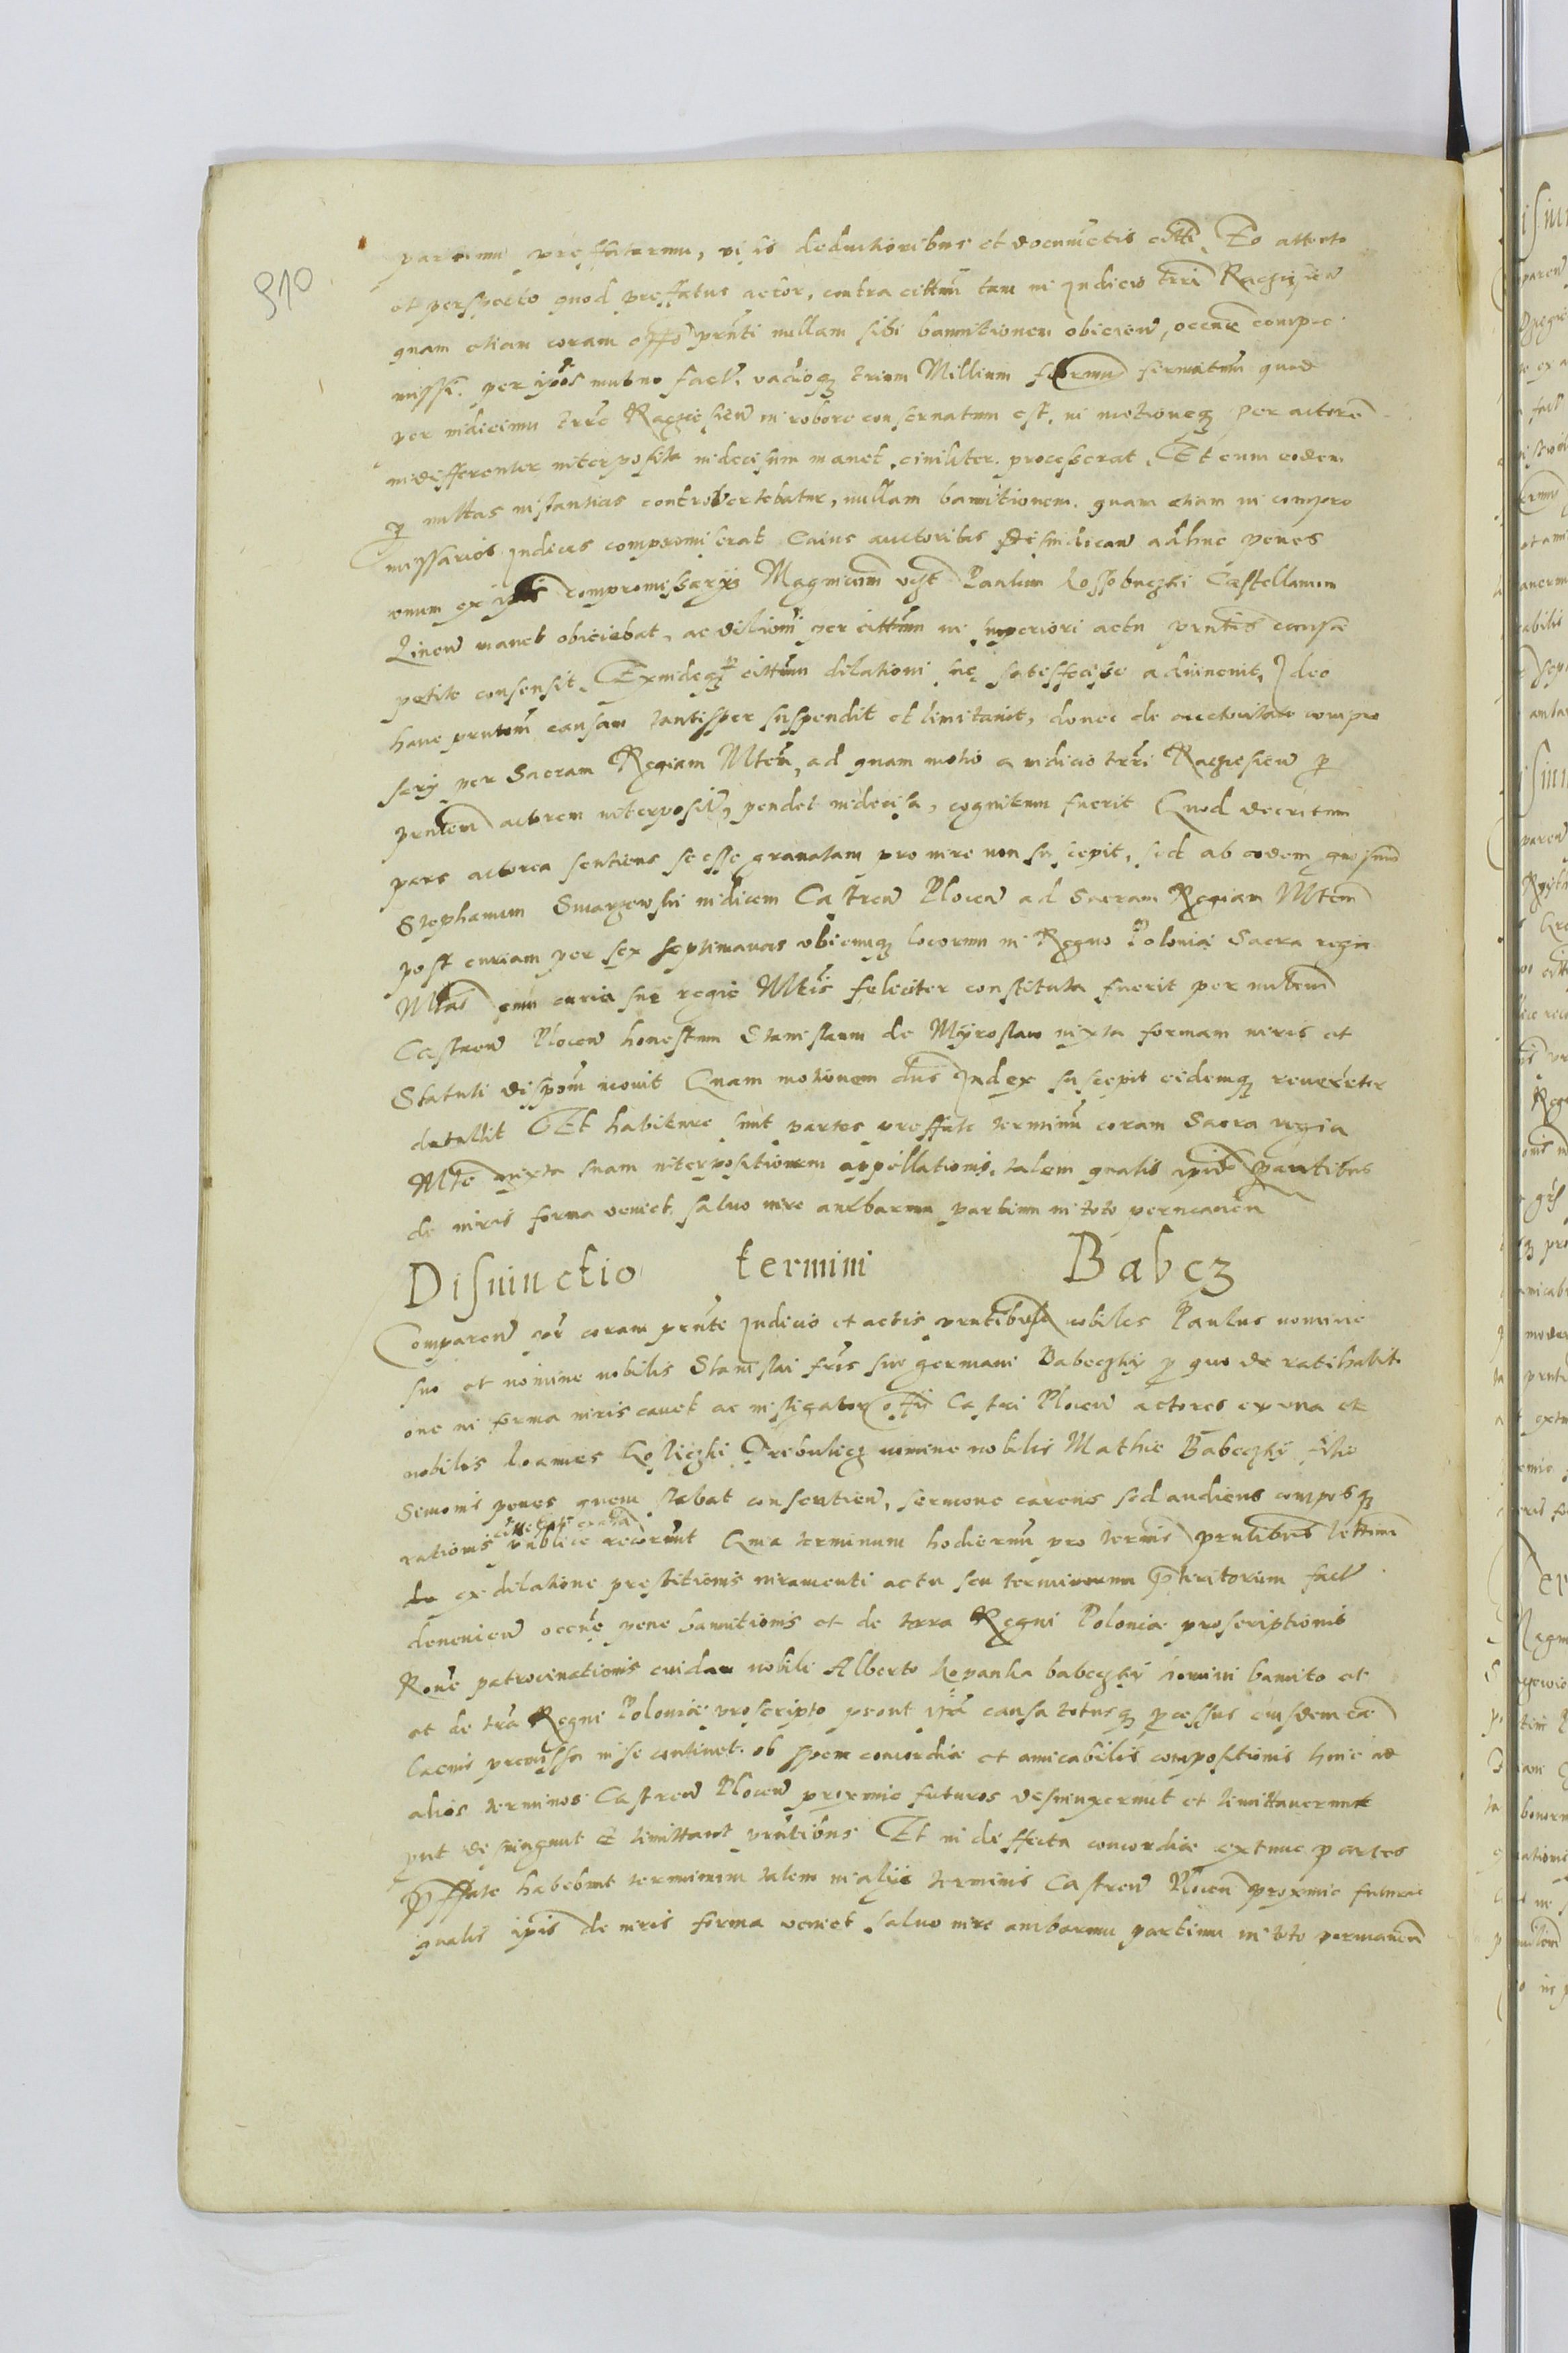 910
partium preffatarum, visis deductionibus et documentis citti. Eo attento
et perspecto quod preffatus actor, contra cittum tam in Judicio trri Raczyazen
quam etiam coram offo prnti nullam sibi bannitionem obicien, occne compro
missi per ipos mutuo fact. vadioq trium Millium firmatum quod
per iudicium trre Racziesien in robore conservatum est, in motioneq per actorem
indifferenter interposita indecisum manet, civiliter processerat. Et cum eodem
p multas instantias controvertebatur, nullam bannitionem quam etiam in compro
missarios Judices compromiserat Cuius auctoritas adhuc penes
unum ex ipis compromissarys Magnicum Paulum Kossobuczki Castellanum
manet obiciebat, ac dilioni per cittum in superiori actu prntis causæ
petite consensit. Exindeq cittum dilationi sue satisfecisse advincuit, Ideo
hanc prntem causam tantisper suspendit et limitavit, donec de auctoritate compro
sery per Sacram Regiam Mtem, ad quam motio a iudicio trri Racziesien p
prntem actorem interposit, pendet indecisa, cognitum fuerit Quod decretum
pars actorea sentiens se esse gravatam pro iure non suscepit, sed ab eodem
Stephanum Smarzewski iudicem Castren Plocen ad Sacram Regiam Mtem
post curiam per sex septimanas ubicunq locorum in Regno Poloniæ Sacra regia
Mtas cum curia sue regie Mtis feliciter constituta fuerit per
Castren Plocen honestum Stanislaum de Myroslaw iuxta formam iuris et
Statuti dispom movit Quam motionem dns Judex suscepit eidemq reverenter
detullit Et habiture sunt partes preffate terminum coram Sacra regia
Mte iuxta suam interpositionem appellationis, talem qualis ipis partibus
de iuris forma veniet, salvo iure ambarum partium in toto permanen
Disiunctio termini Babcz
Comparen coram prnte Judicio et actis prntibus nobiles Paulus nomine
suo et nomine nobilis Stanislai fris sui germani Babeczky p quo de ratihabiti
one in forma iuris cavet ac instigator offii Castri Plocen actores ex una et
nobiles Joannes nomine nobilis Mathie Babeczky filio
Simonis penes quem stabat consentien, sermone carens sed audiens composq
rationis publice recorunt Qma terminum hodiernum pro termis prntibus
do ex dilatione prestitionis iuramenti actu seu terminorum preteritorum fact
devenien occne pene bannitionis et de terra Regni Poloniæ proscriptionis
Rone patrocinationis cuidam nobili Alberto Kopanka babeczky homini bannito et
et de tra Regni Poloniæ proscripto prout ipa causa totusq pcessus eiusdem
lacius premissa in se continet, ob spem concordiæ et amicabilis compositionis hinc ad
alios terminos Castren Plocen proximie futuros desiunxerunt et limittaverunt
put desiungunt et limittant prntibus Et in deffectu concordiæ extunc partes
pffate habebunt terminum talem in alijs terminis Castren Plocen proxime futuris
qualis ipis de iuris forma veniet, salvo iure ambarum partium in toto permanen